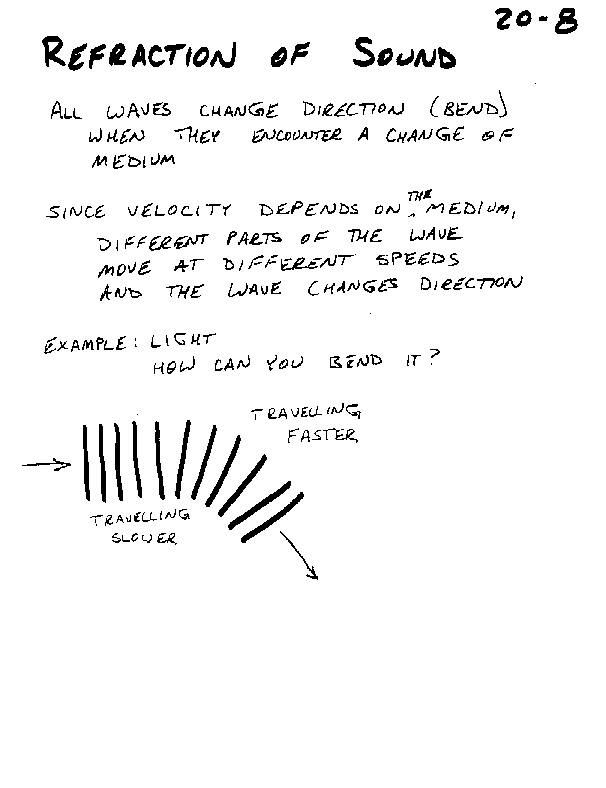 20-8
REFRACTION OF SOUND
ALL WAVES CHANGE DIRECTION (BEND)
WHEN THEY ENCOUNTER A CHANGE OF
MEDIUM
SINCE VELOCITY DEPENDS ON THE MEDIUM,
DIFFERENT PARTS OF THE WAVE
MOVE AT DIFFERENT SPEEDS
AND THE WAVE CHANGES DIRECTION
EXAMPLE: LIGHT
HOW CAN YOU BEND IT?
TRAVELLING
FASTER
TRAVELLING
SLOWER